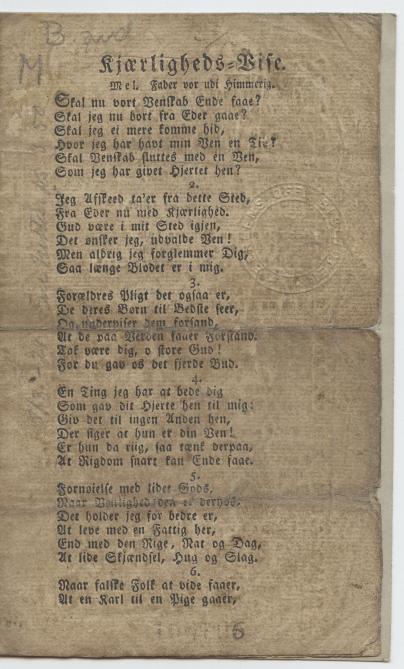 B
M
Kjærligheds-Vise.
Mel. Fader vor udi Himmerig.
Skal nu vort Venskab Ende faae?
Skal jeg nu bort fra Eder gaae?
Skal jeg ei mere komme hid,
Hvor jeg har havt min Ven en Tid?
Skal Venskab sluttes med en Ven,
Som jeg har givet Hjertet hen?
2.
Jeg Afskeed ta'er fra dette Sted,
Fra Eder nu med Kjærlighed.
Gud være i mit Sted igjen,
Det ønsker jeg, udvalde Ven!
Men aldrig jeg forglemmer Dig,
Saa længe Blodet er i mig.
3.
Forældres Pligt det ogsaa er,
De deres Børn til Bedste seer,
Og underviser dem forsand,
At de paa Verden faaer Forstand.
Tak være dig, o store Gud!
For du gav os det fjerde Bud.
4.
En Ting jeg har at bede dig
Som gav dit Hjerte hen til mig:
Giv det til ingen Anden hen,
Der siger at hun er din Ven!
Er hun da riig, saa tænk derpaa,
At Rigdom snart kan Ende faae.
5.
Fornøielse med lidet Gods,
Naar Venlighed den er derhos,
Det holder jeg for bedre er,
At leve med en Fattig her,
End med den Rige, Nat og Dag,
At lide Skjændsel, Hug og Slag.
6.
Naar falske Folk at vide faaer,
At en Karl til en Pige gaaer,
5